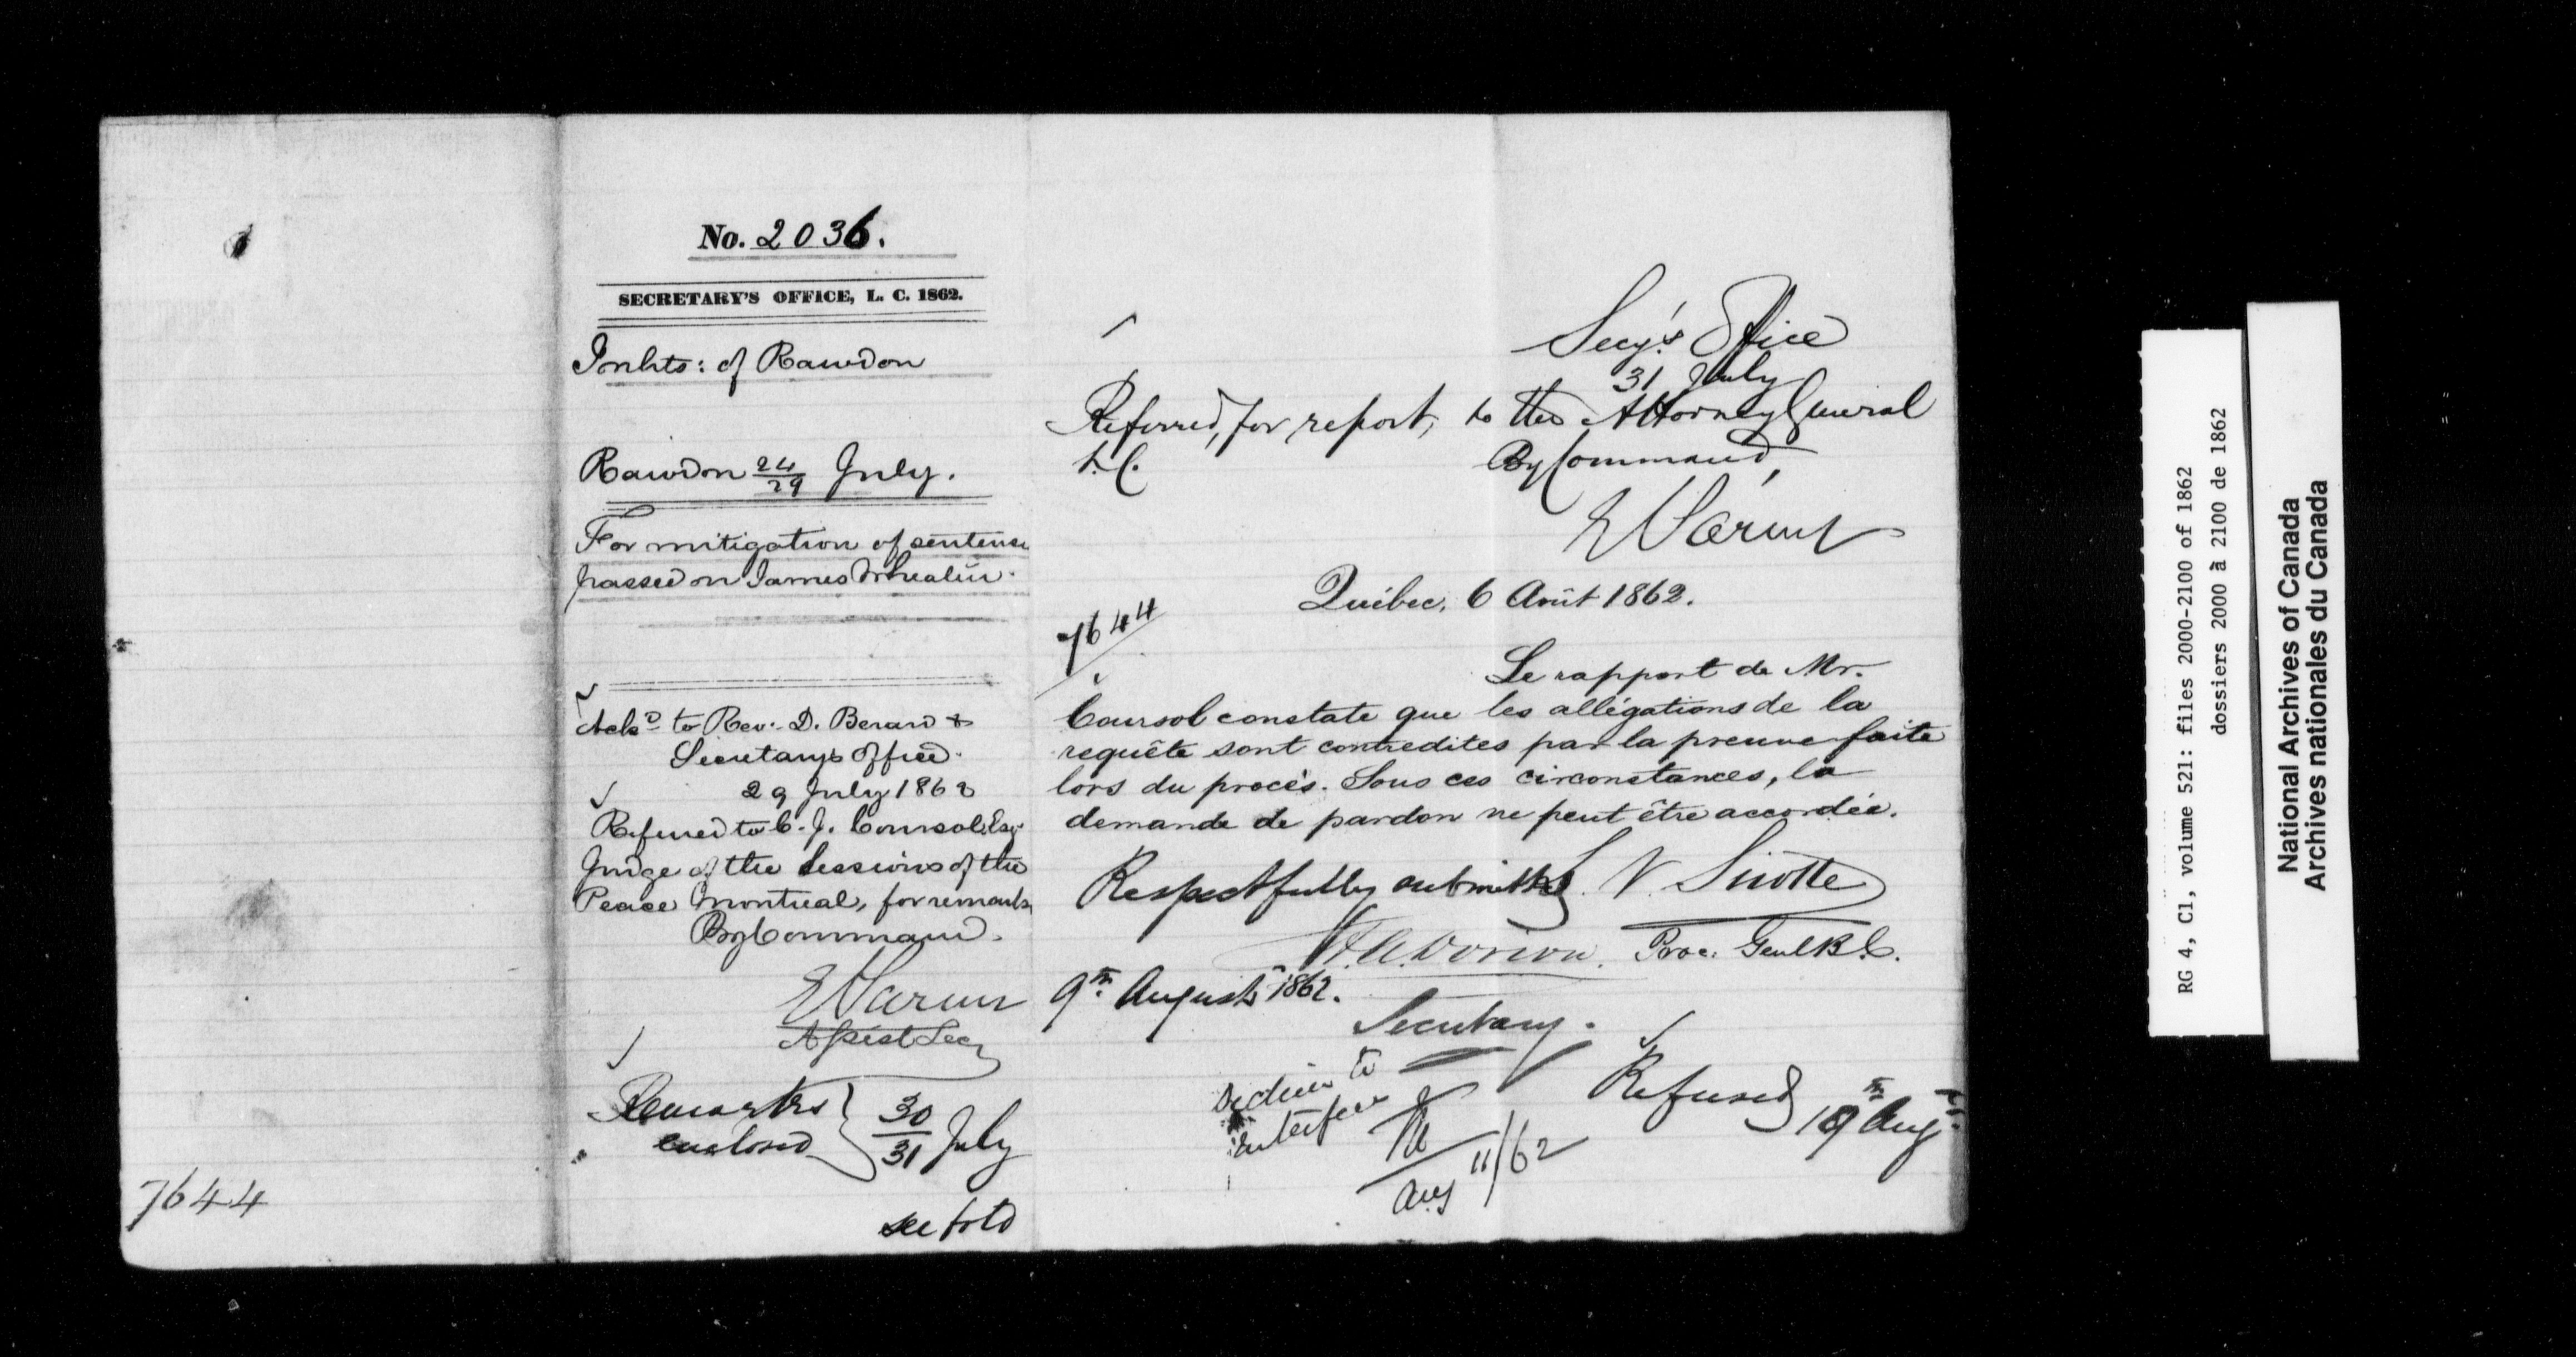 No. 2036.
SECRETARY'S OFFICE, L. C. 1862.
Inhts: of Rawdon
Rawdon 24/29 July.
For mitigation of sentence
passed on James Whealin.
Ackd to Rev. D. Berard &
Secretary's Office.
29 July 1862
Referred to C. J. Coursol, Esqr
Judge of the Sessions of the
Peace Montreal, for remarks
By Command.
Assist Secy
Remarks
enclosed } 30/31 July
see fold
7644
Secy's Office
31 July
Referred, for report, to the Attorney General
L. C.
By Command,
Québec, 6 Août 1862.
7644
Le rapport de Mr.
Coursol constate que les allégations de la
requête sont contredites par la preuve faite
lors du procès. Sous ces circonstances, la
demande de pardon ne peut être accordée.
L. V. Sicotte
Proc. Genl B. C.
Respectfully submitted
A. A. Dorion.
9th August 1862.
Secretary.
Decline to
interfere
M
Aug 11/62
Refused 19th Augt.
RG 4, C1, volume 521: files 2000-2100 of 1862
dossiers 2000 à 2100 de 1862
National Archives of Canada
Archives nationales du Canada